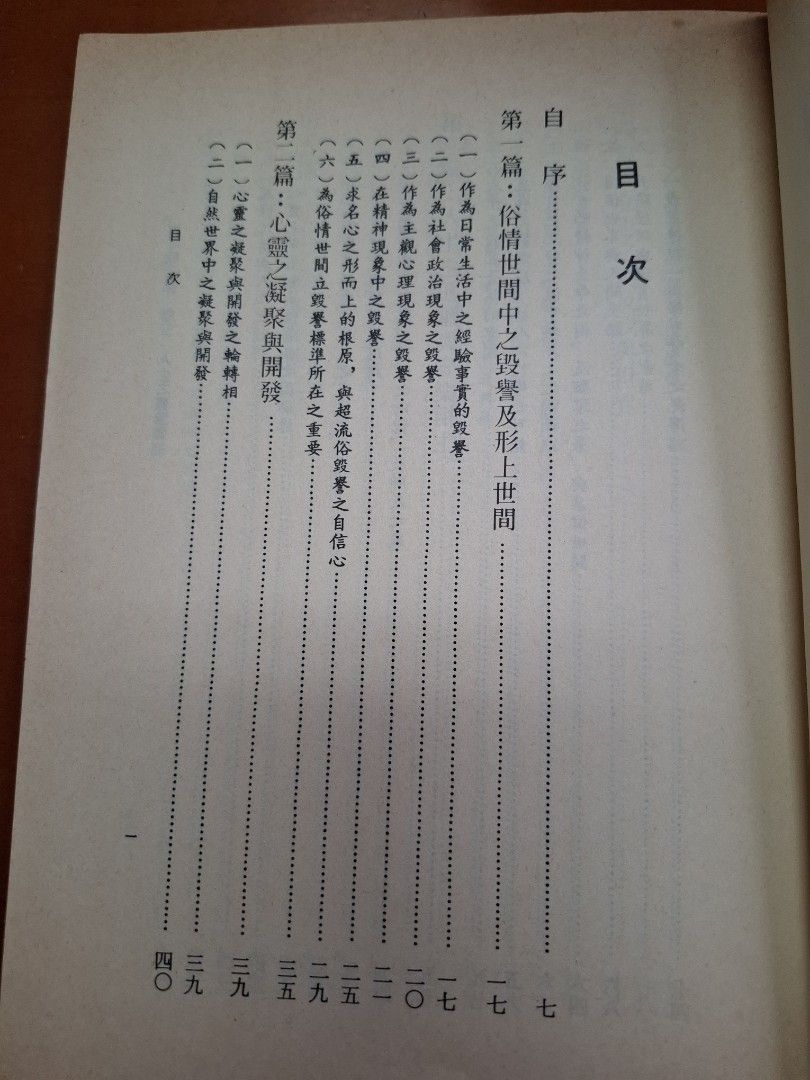 目 次
自 序……七
第一篇：俗情世間中之毀譽及形上世間……一七
（一）作為日常生活中之經驗事實的毀譽……一七
（二）作為社會政治現象之毀譽……二〇
（三）作為主觀心理現象之毀譽……二一
（四）在精神現象中之毀譽……二五
（五）求名心之形而上的根原，與超流俗毀譽之自信心……二九
（六）為俗情世間立毀譽標準所在之重要……三五
第二篇：心靈之凝聚與開發……三九
（一）心靈之凝聚與開發之輪轉相……三九
（二）自然世界中之凝聚與開發……四〇
目 次
一